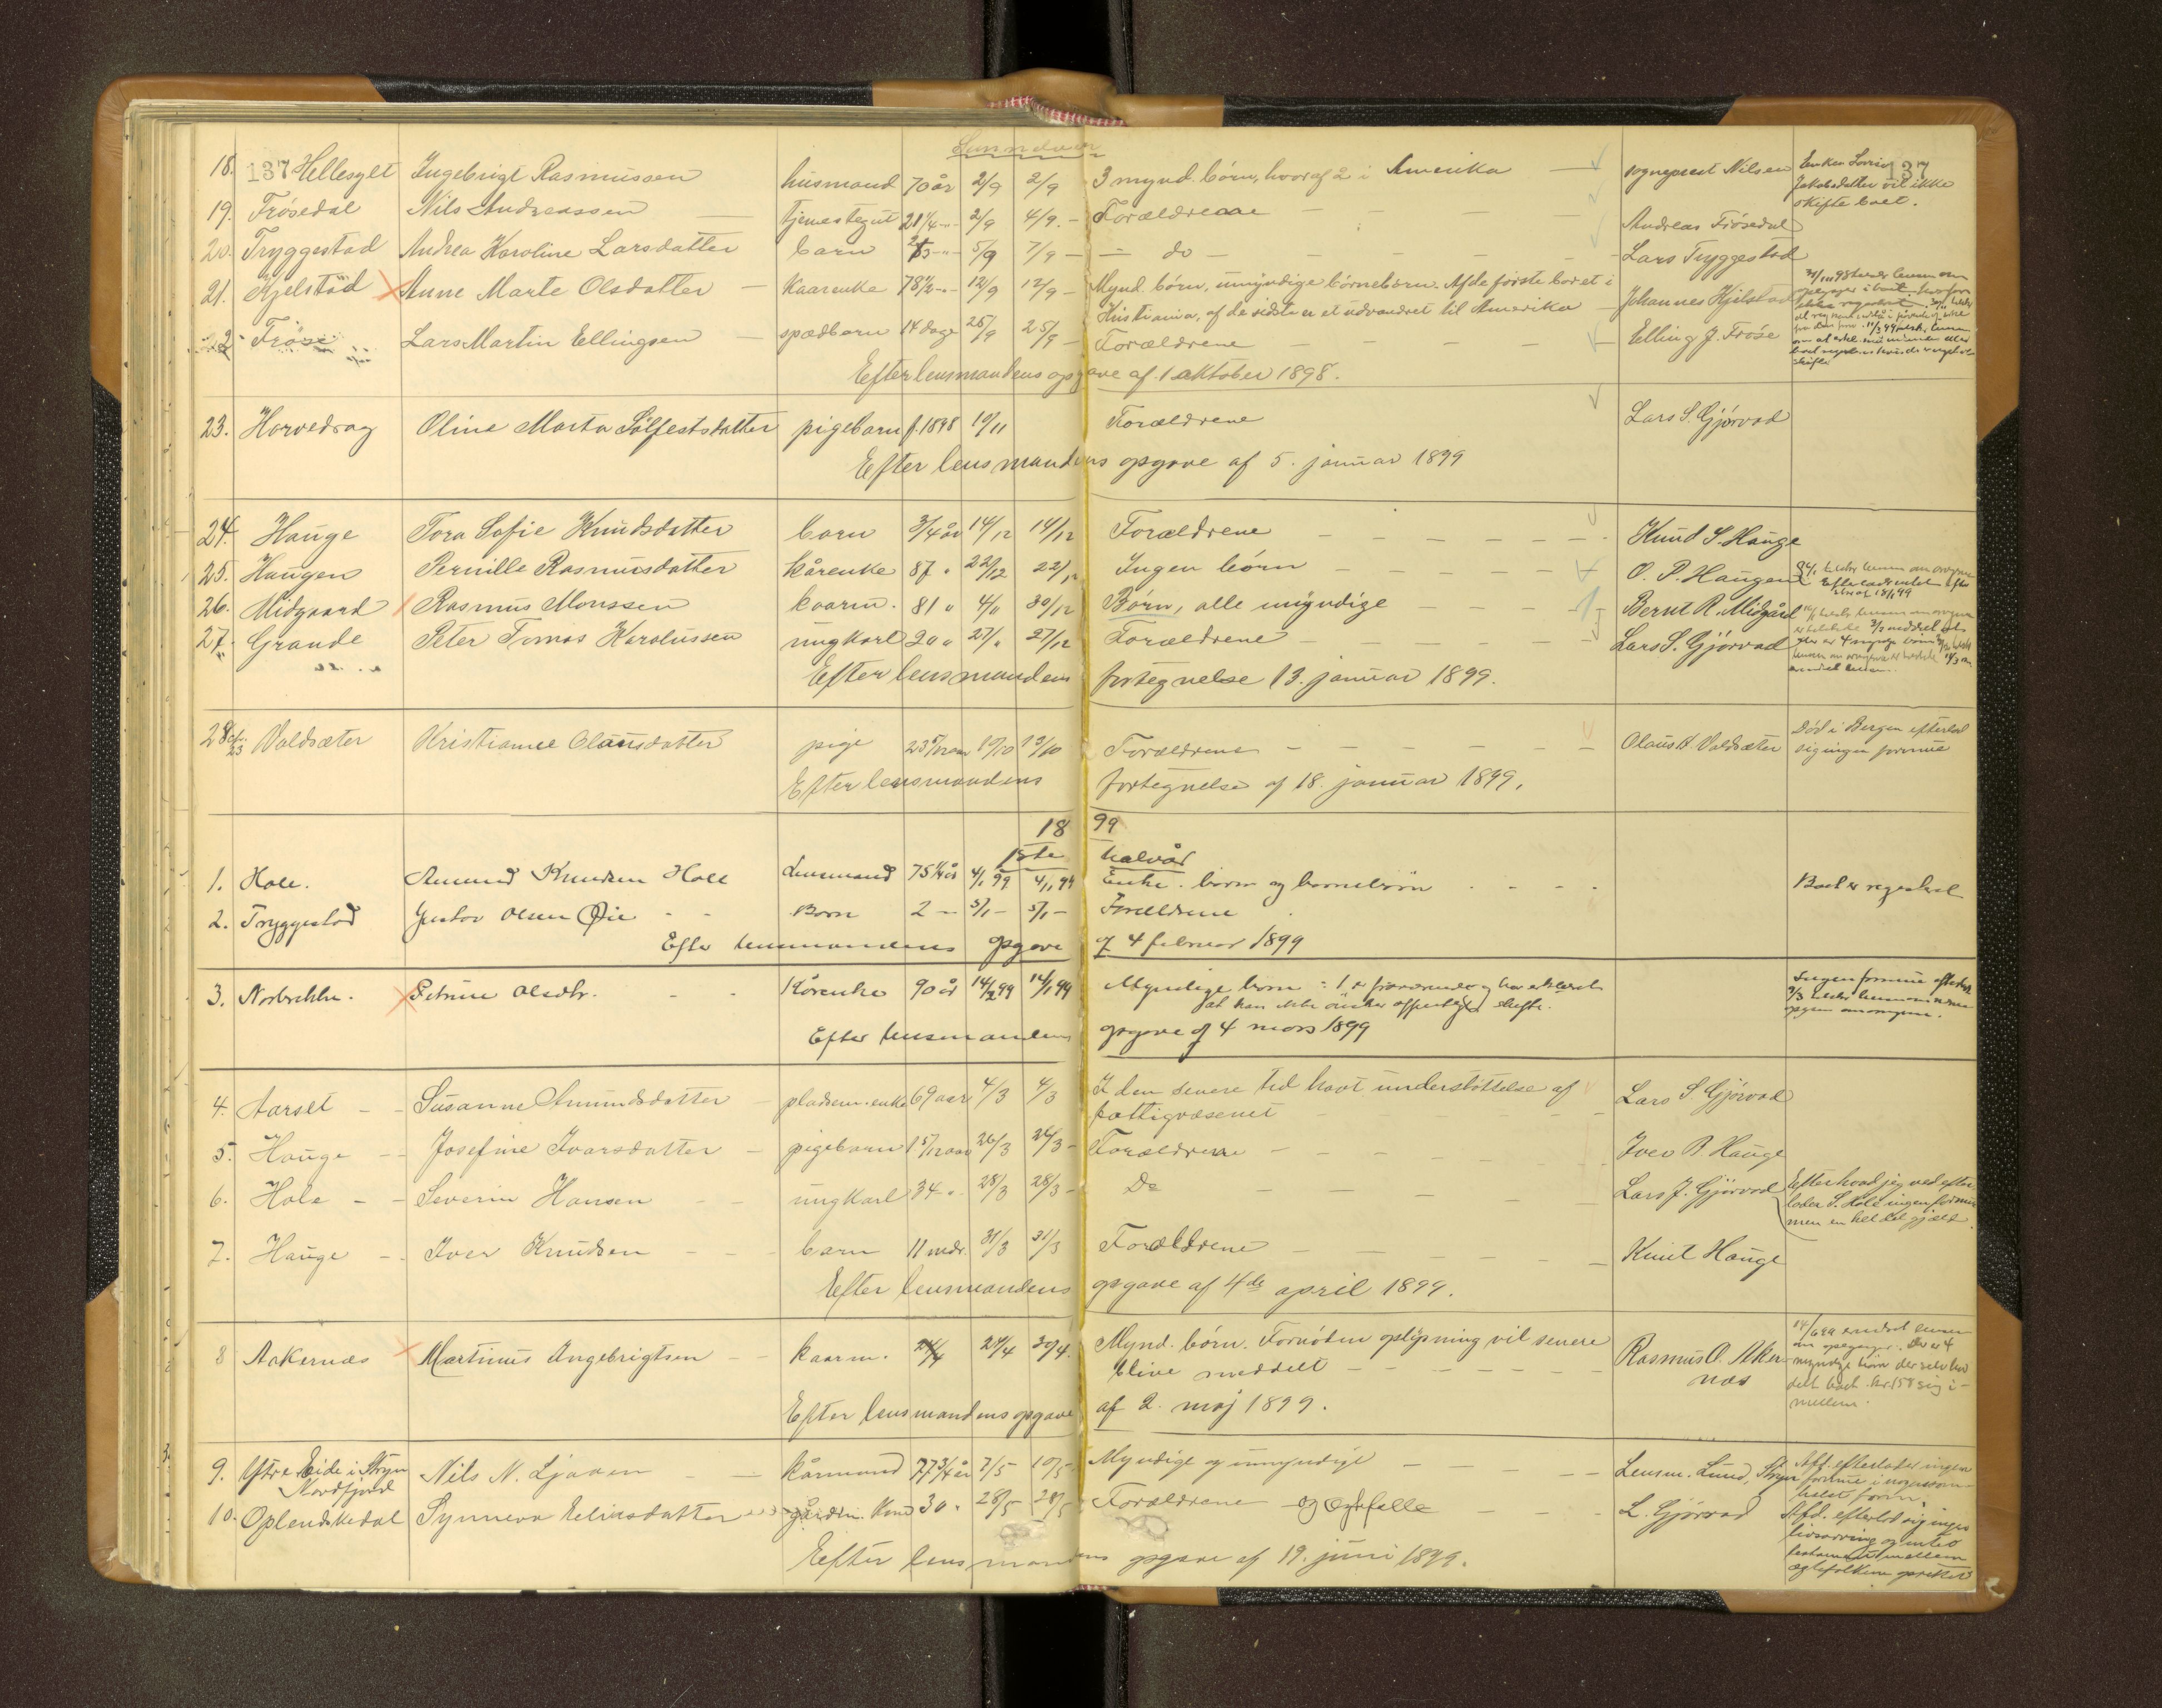 Sunndven
18. 137 Hellesylt Ingebrigt Rasmussen husmand 70 år 2/9 2/9 3 mynd. børn, hvoraf 2 i Amerika — sogneprest Nilsen Enken Lovise 137
Jakobsdatter vil ikke
skifte boet.
19. Frøsedal Nils Andreassen — tjenestegut 21 1/4 -"- 2/9 4/9 - Forældrene — — Andreas Frøsedal
20. Tryggestad Andrea Karoline Larsdatter barn 5/9 7/9 - — do — Lars Tryggestad
21. Kjelstad Anne Marte Olsdatter — kaarenke 78 1/2 -"- 12/9 12/9 - Mynd. børn, umyndige børnebørn. Af de første bor et i
Kristiania, af de sidste er et udvandret til Amerika — Johannes Kjelstad
22 Frøse Lars Martin Ellingsen — spædbarn 14 dage 25/9 25/9 - Forældrene — — — — Elling J. Frøse
Efter lensmandens opgave af 1 oktober 1898.
23. Horvedrag Oline Marta Sølfestsdatter pigebarn f. 1898 10/11 Forældrene Lars S. Gjørvad
Efter lensmandens opgave af 5. januar 1899
24. Hauge Tora Sofie Knudsdatter barn 3/4 år 14/12 14/12 Forældrene — — — — — Knud S. Hauge
25. Haugen Pernille Rasmusdatter kårenke 87 " 22/12 22/12 Ingen børn — — — — — O. P. Haugen
26. Midgaard Rasmus Monssen kaarm. 81 " 4/11 30/12 Børn, alle myndige — — — — Bernt R. Midgård
27. Grande Peter Tomas Karolussen ungkarl 20 " 27/" 27/12 Forældrene — — — — Lars S. Gjørvad
Efter lensmandens fortegnelse 13. januar 1899.
28 cfr. 23 Valdsæter Kristianne Olausdatter pige 23 10/10 13/10 Forældrene — — — — — — Olaus B. Valdsæter Død i Bergen efterlod
sig ingen formue
Efter lensmandens fortegnelse af 18. januar 1899.
18 99
1ste halvår
1. Hole. Amund Knudsen Hole Lensmand 75 1/4 år 4/1 99 4/1 99 Enke. børn og børnebørn . - - . Boet er registreret
2. Tryggestad Gustav Olsen Øie - - Barn 2 — 5/1 - 5/1 - Forældrene
Efter lensmandens opgave af 4 februar 1899
3. Petrine Olsdtr. - - Kårenke 90 år 14/2 99 14/1 99 Myndige børn : 1 er fraværende og har erklæret
at han ikke ønsker offentligt skifte. Ingen formue
Efter lensmandens opgave af 4 mars 1899
4. Aarset — - Susanne Amundsdatter pladsem. enke 69 aar 4/3 4/3 I den senere tid havt understøttelse af
fattigvæsenet — — Lars S Gjørvad
5. Hauge — - Josefine Ivarsdatter — pigebarn 1 5/12 aar 26/3 26/3 - Forældrene — — — — Iver B Hauge
6. Hole — - Severin Hansen — ungkarl 34 " 28/3 28/3 - Do — — — — Lars J. Gjørvad Efter hvad jeg ved efter-
lader S. Hole ingen formue
men en hel del gjæld.
7. Hauge — - Iver Knudsen — — barn 11 mdr. 31/3 31/3 Forældrene — — — — Knut Hauge
Efter lensmandens opgave af 4de april 1899.
8 Aakernæs Martinus Ingebrigtsen — kaarm. 24/4 24/4 30/4. Mynd. børn. Fornøden oplysning vil senere
blive meddelt — — — — — — Rasmus O. Aker-
næs
myndige børn der selv har
delt boet imellem
mellem.
Efter lensmandens opgave af 2. maj 1899.
9. Ytre Eide i Stryn
Nordfjord Nils N. Ljøen — — kårmand 77 3/4 år 7/5 10/5 - Myndige og umyndige — — — — Lensm. Lund, Stryn Afd. efterlader ingen
formue i nogensom-
helst form.
10. Oplendskedal Synneva Eliasdatter gårdm. Kone 30 " 28/5 28/5 Forældrene og — — — L. Gjørvad Afd. efterlod sig ingen
livsarving og intet
testament mellem
ægtefolkene oprettet
Efter lensmandens opgave af 19. juni 1899.